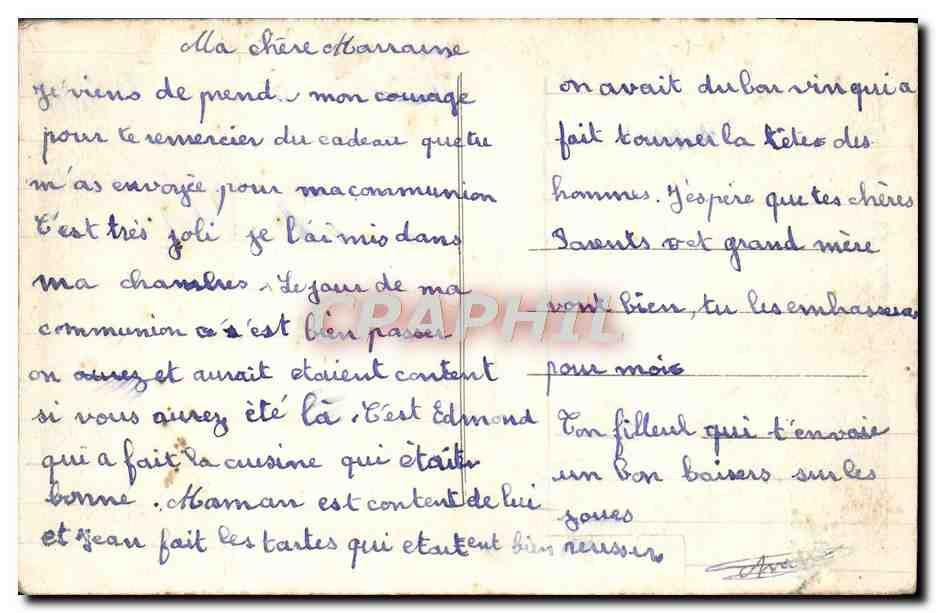 Ma chère Marraine
Je viens de prend. mon courage
pour te remercier du cadeau que tu
m'as envoyée pour ma communion
C'est très joli je l'ai mis dans
ma chambres. Le jour de ma
communion s'est bien passer
on aurez et aurait etaient content
si vous aurez été là. C'est Edmond
qui a fait la cuisine qui était
bonne. Maman est content de lui
et Jean fait les tartes qui etaitent bien reussir
on avait du bon vin qui a
fait tourner la tête des
hommes. J'espère que tes chères
Parents et grand mère
vont bien, tu les embassera
pour moi
Ton filleul qui t'envoie
un bon baisers sur les
joues
CPARPHIL